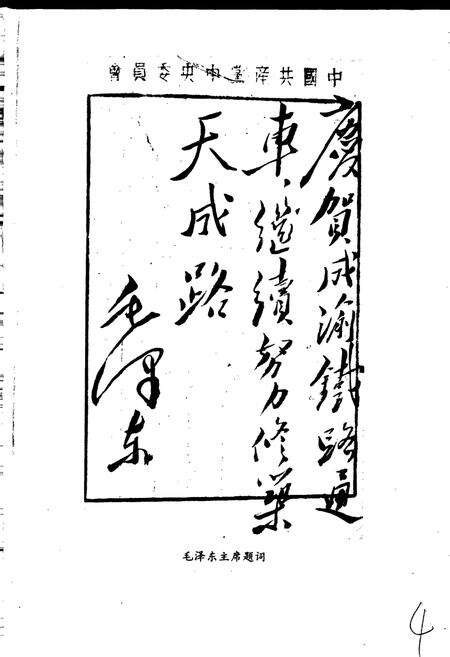 中國共產黨中央委員會
慶賀成渝鐵路通
車，繼續努力修築
天成路
毛澤东
毛泽东主席题词
4